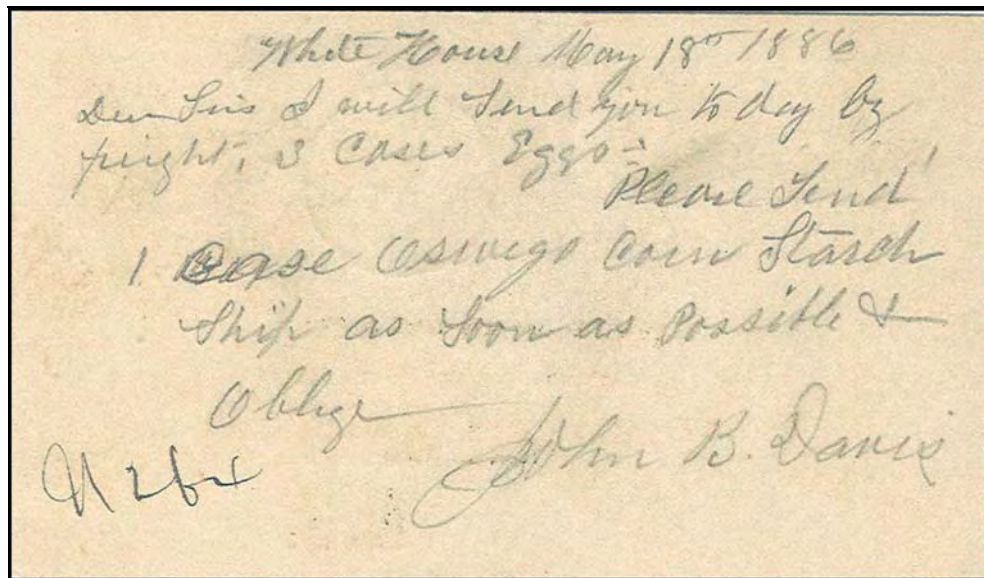 White House May 18th 1886
Dear Sirs I will Send you to day by
freight, 3 Cases Eggs =
Please Send
1 Case Oswego Corn Starch
Ship as Soon as Possible &
Oblige
John B. Davis